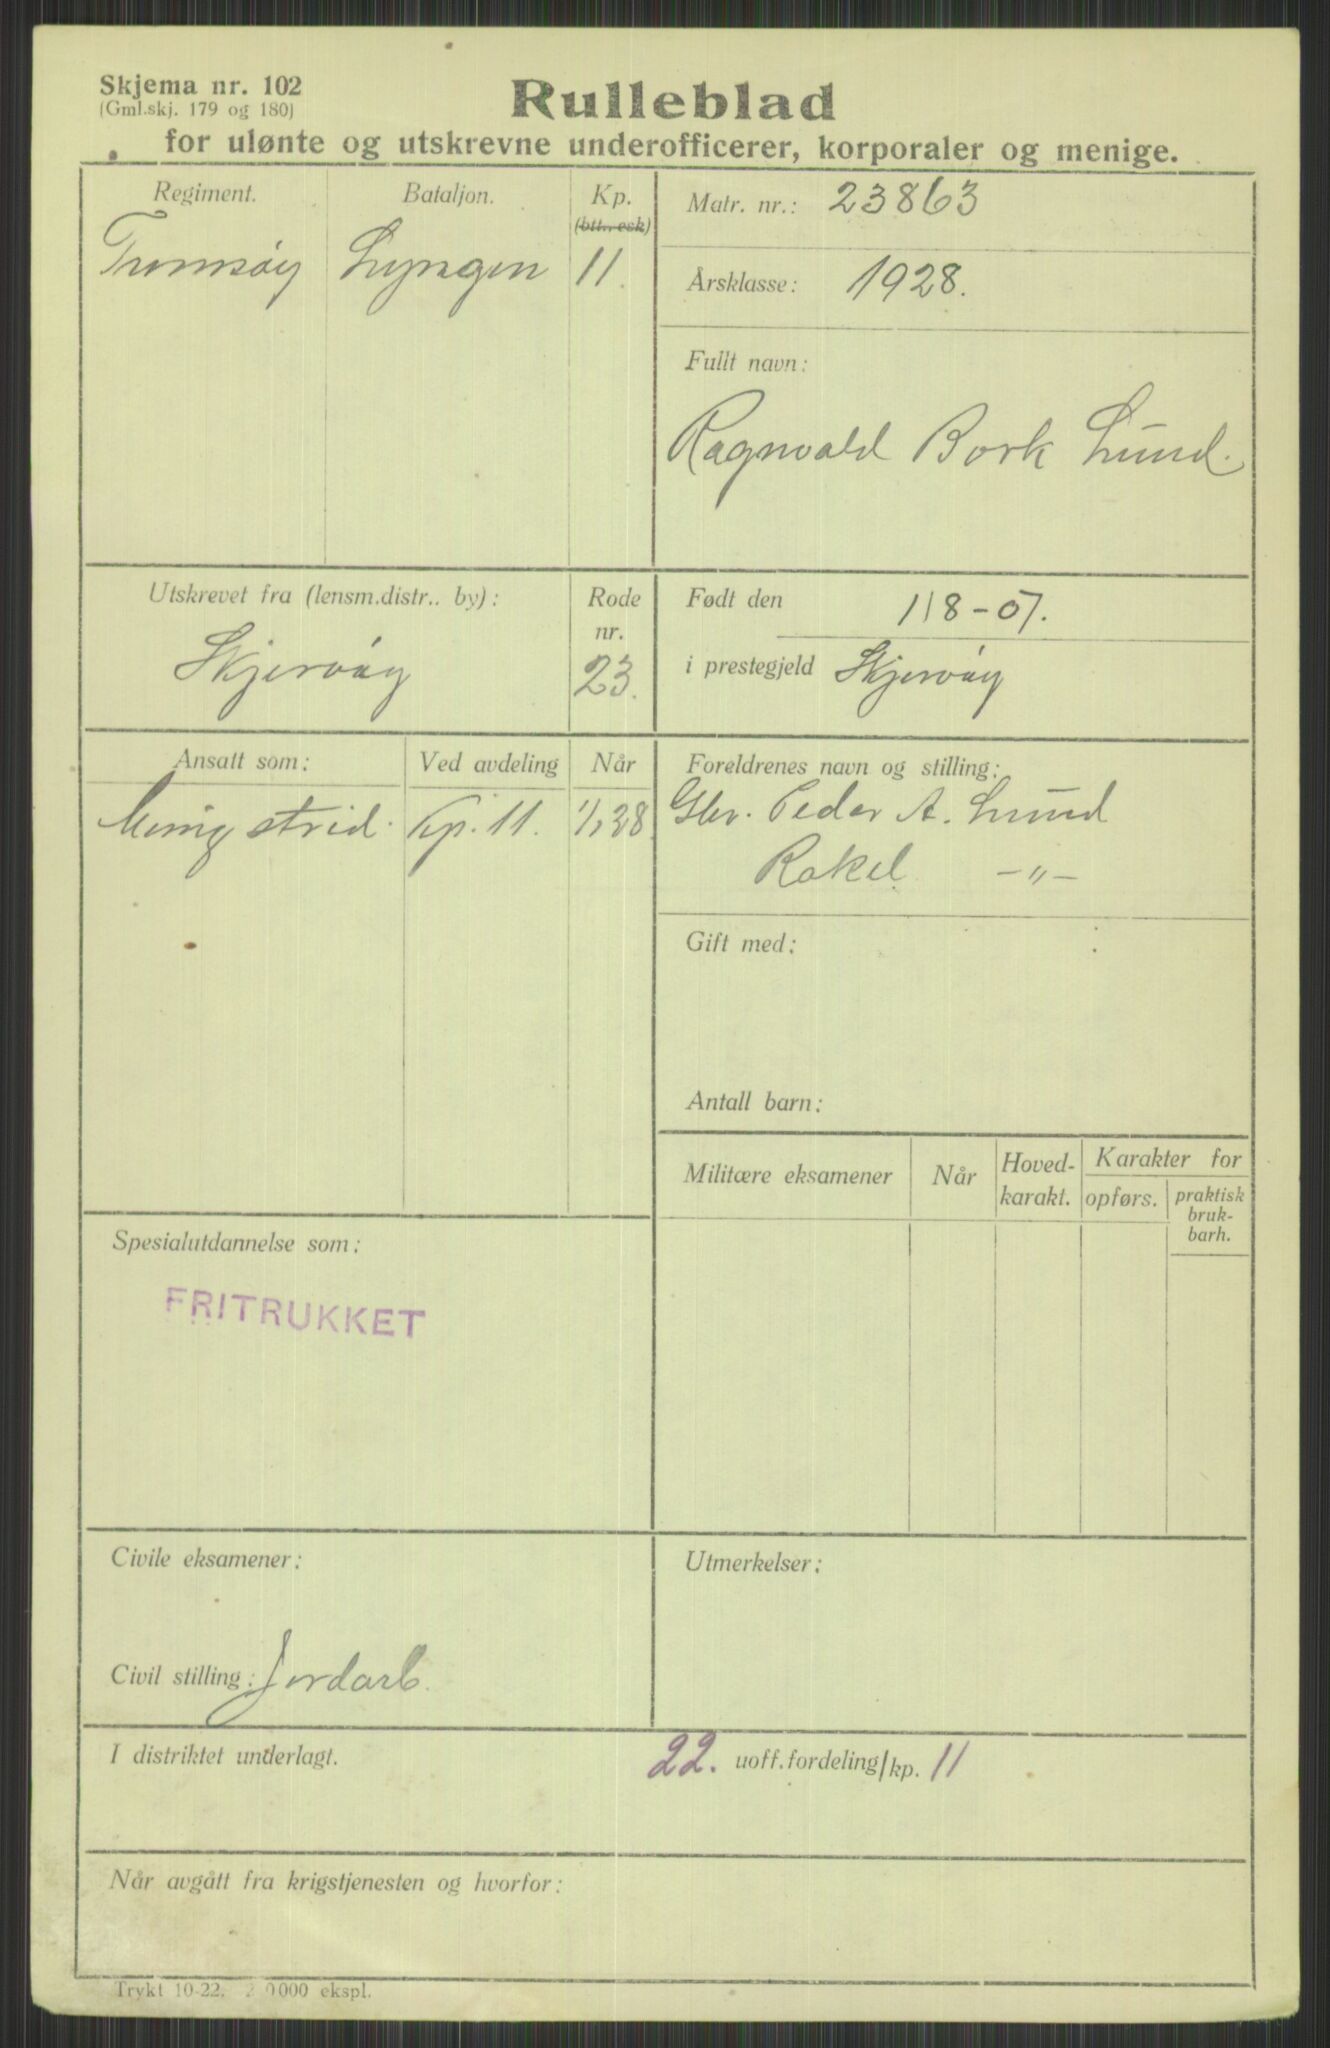 Skjema nr. 102
(Gml.skj. 179 og 180)
Rulleblad
for ulønte og utskrevne underofficerer, korporaler og menige.
Regiment. Bataljon. Kp.
(btt., esk)
Tromsøy Lyngen 11.
Matr. nr.: 23863
Årsklasse: 1928.
Fullt navn:
Ragnvald Bork Lund.
Utskrevet fra (lensm.distr.. by): Rode
nr.
Skjervøy 23.
Født den 1/8-07.
i prestegjeld Skjervøy
Ansatt som: Ved avdeling Når
Menig strid. Kp. 11. 1/1 28
Foreldrenes navn og stilling:
Gbr. Peder A. Lund
Rakel -"-
Gift med:
Antall barn:
Militære eksamener Når Hoved-
karakt. Karakter for
opførs. praktisk
bruk-
barh.
Spesialutdannelse som:
FRITRUKKET
Civile eksamener:
Utmerkelser:
Civil stilling: Jordarb.
I distriktet underlagt. 22. uoff.fordeling/kp. 11
Når avgått fra krigstjenesten og hvorfor:
Trykt 10-22. 2 0 000 ekspl.